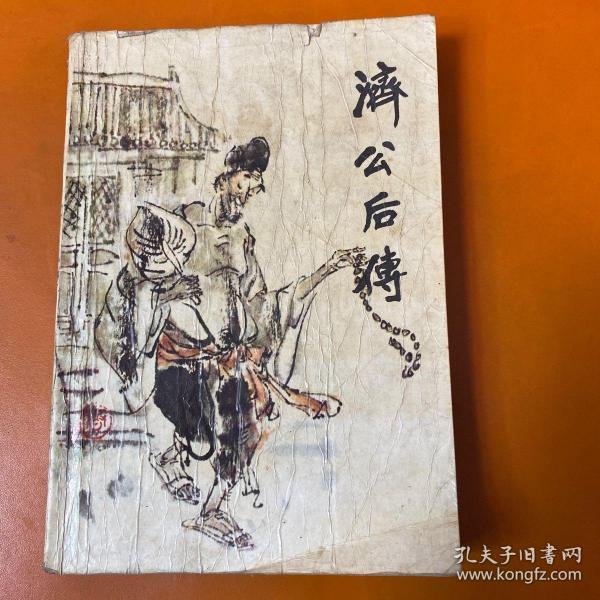 濟公后傳
孔夫子旧书网
www.kongfz.com